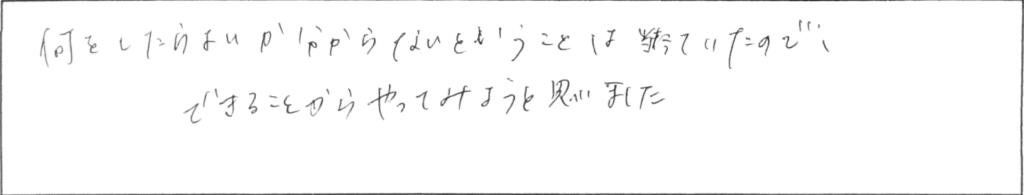 何をしたらよいか分からないということは勢ていたので、
できることからやってみようと思いました